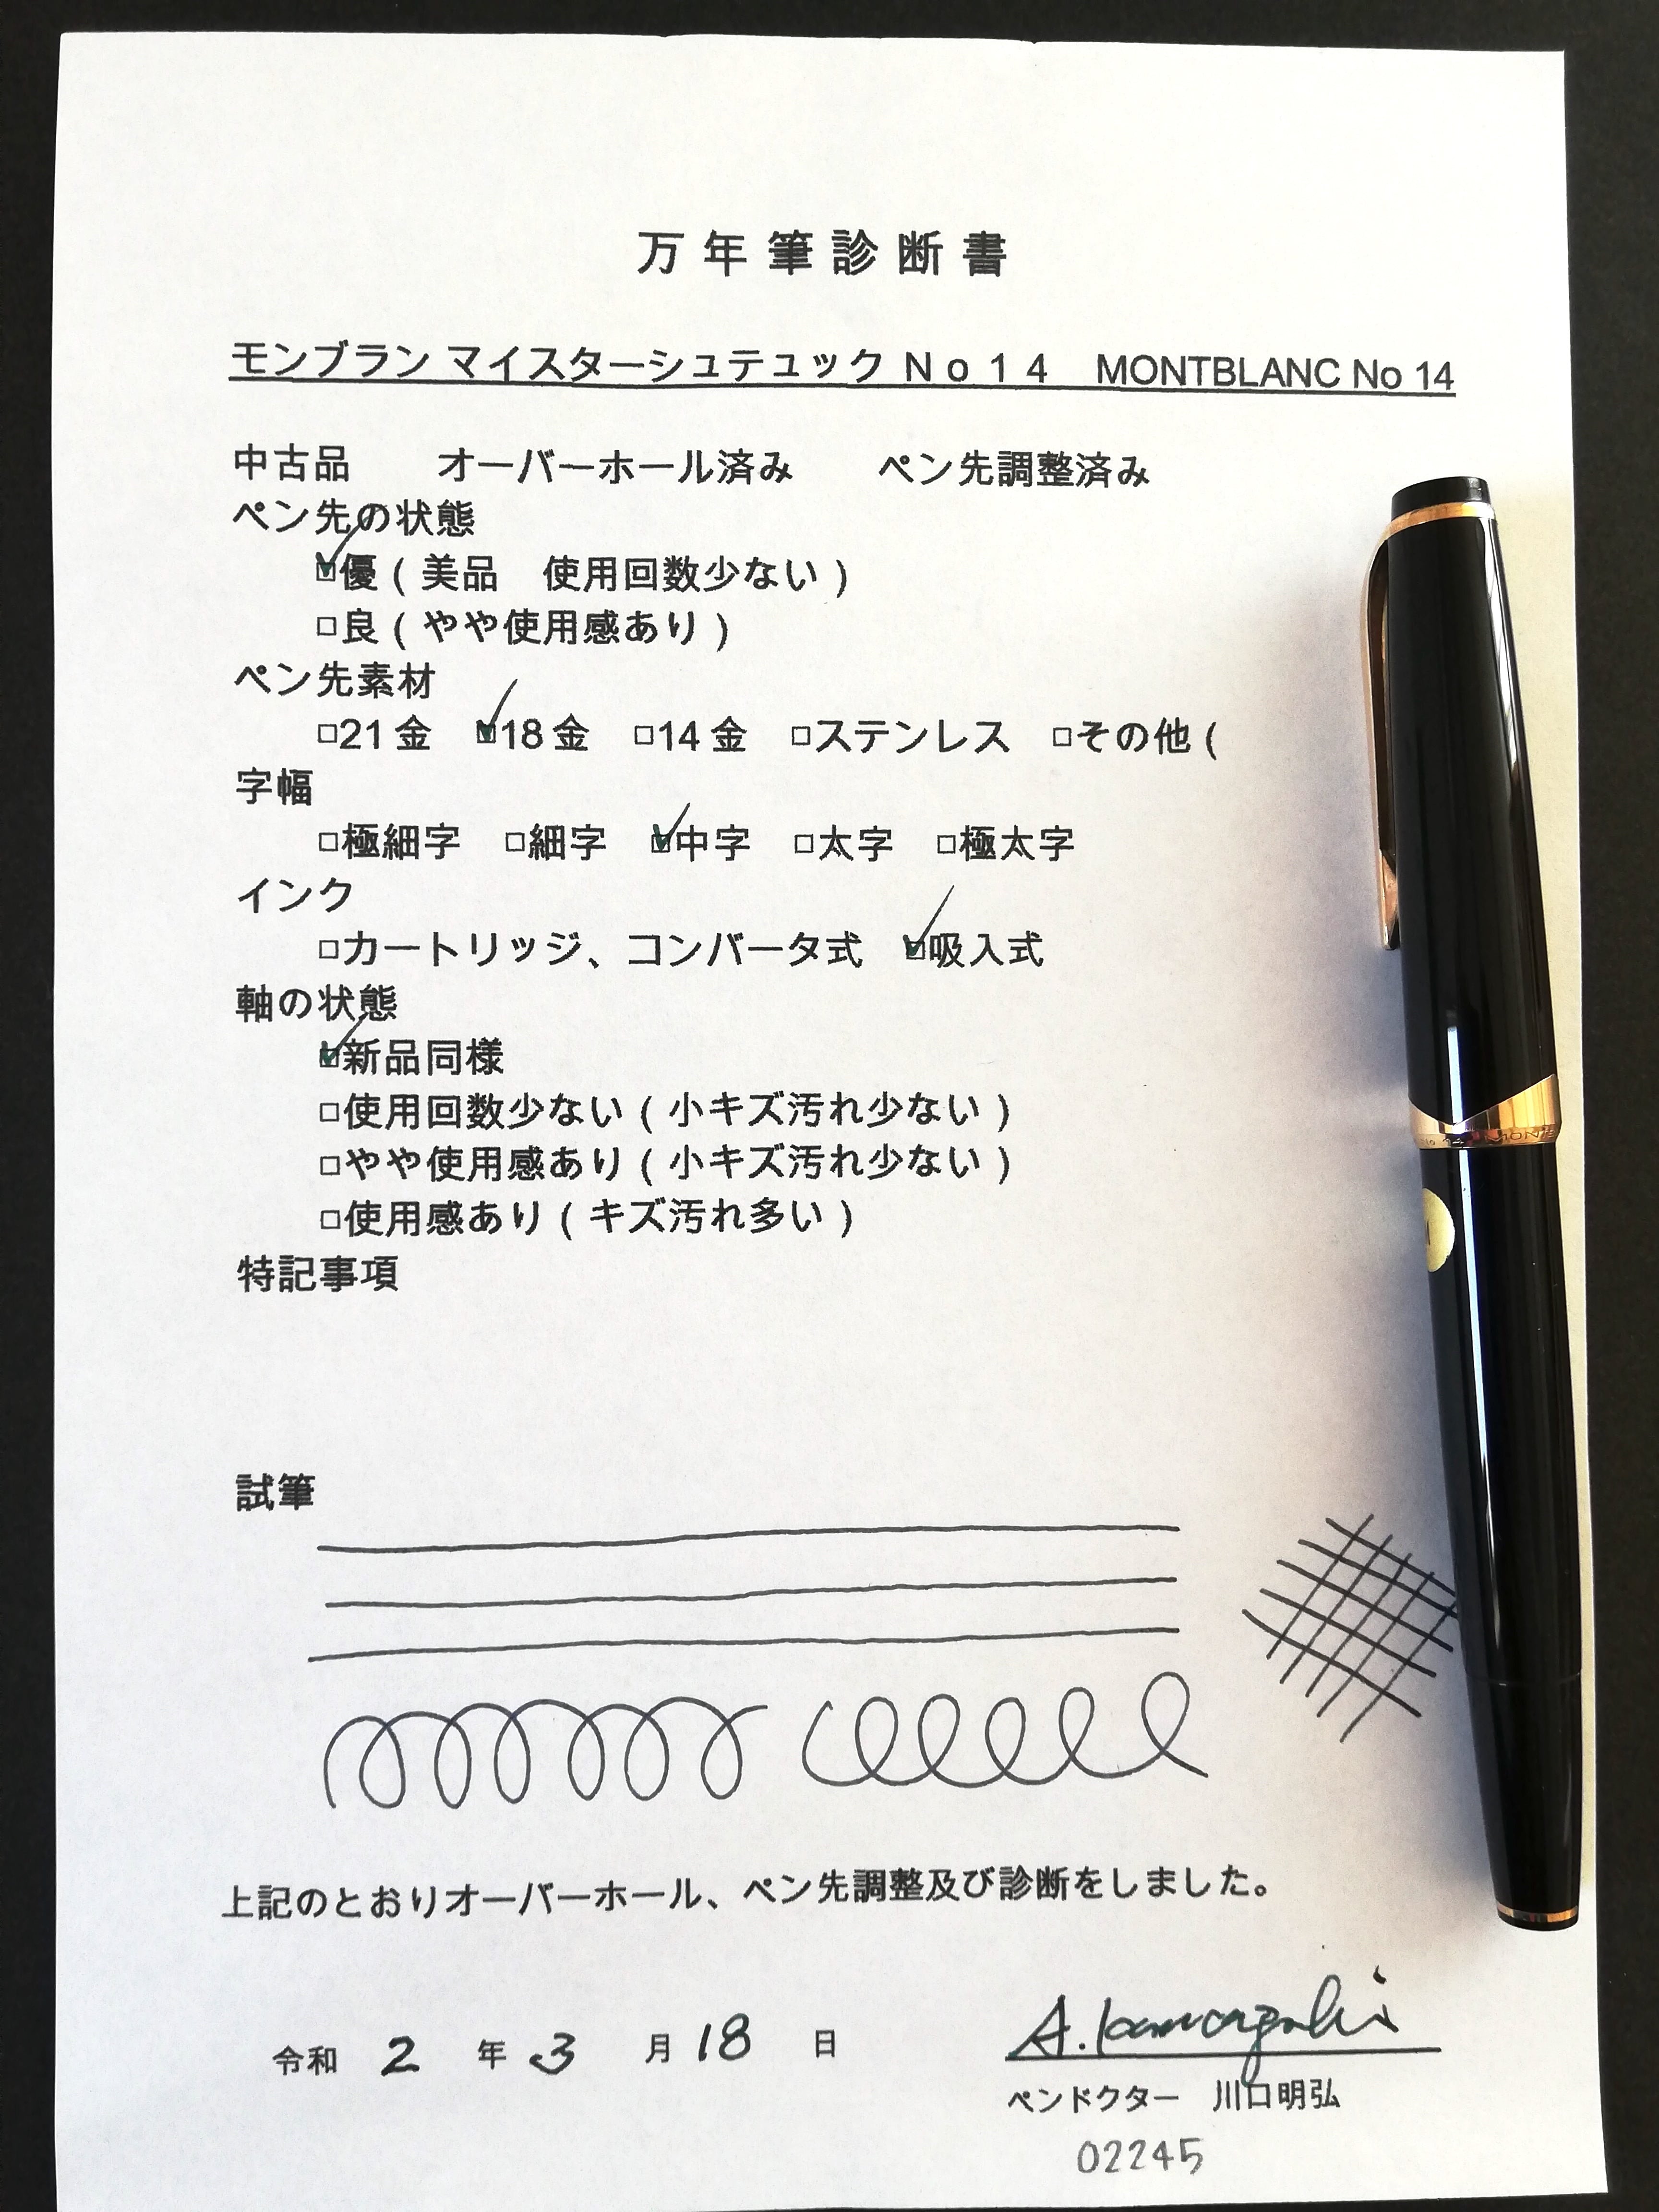 万年筆診断書
モンブラン マイスターシュテュック Ｎｏ１４　MONTBLANC No 14
中古品　　オーバーホール済み　　ペン先調整済み
ペン先の状態
☑優（美品　使用回数少ない）
□良（やや使用感あり）
ペン先素材
□21金　☑18金　□14金　□ステンレス　□その他（
字幅
□極細字　□細字　☑中字　□太字　□極太字
インク
□カートリッジ、コンバータ式　☑吸入式
軸の状態
☑新品同様
□使用回数少ない（小キズ汚れ少ない）
□やや使用感あり（小キズ汚れ少ない）
□使用感あり（キズ汚れ多い）
特記事項
試筆
上記のとおりオーバーホール、ペン先調整及び診断をしました。
令和 2 年 3 月 18 日
A. Kawaguchi
ペンドクター　川口明弘
02245